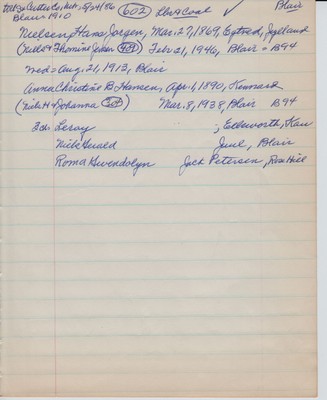 602 Lbr & Coal Blair
Blair 1910
Nielsen, Hans Jorgen, Mar. 27, 1869, Egtved, Jylland
(Niels & Thomine Johan 409) Feb 21, 1946, Blair = B94
wed = Aug. 21, 1913, Blair
Anna Christine B. Hansen, Apr. 1, 1890, Kennard
(Niels H & Johanna 307) Mar. 8, 1938, Blair B94
Ed: Leroy ; Ellsworth, Kan
Niels Gerald June, Blair
Roma Gwendolyn Jack Petersen, Rose Hill